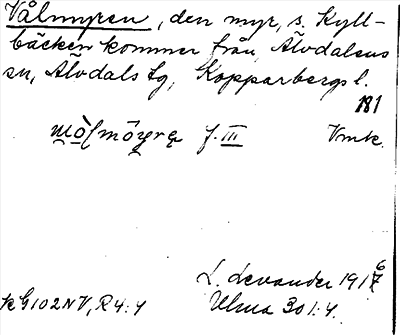 Vålmyren, den myr, s. Kyll-
bäcken kommer från, Älvdalens
sn, Älvdals tg, Kopparbergs l.
181
f. III Vmk.
L. Levander 1916
kG102NV, R4:4 Ulma 301:4.